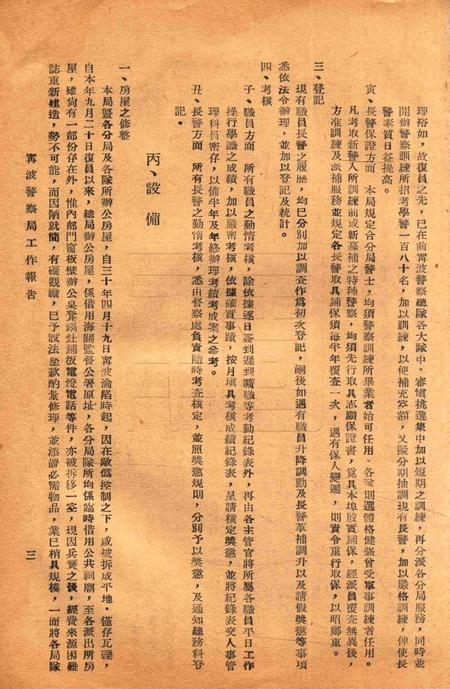 理裕如，故復員之先，已在前甯波警察總隊各大隊中，審慎挑選集中加以短期之訓練，再分派各分局服務，同時並
開辦警察訓練所招考學警一百八十名，加以訓練，以便補充空額，又擬分期抽調現有長警，加以嚴格訓練，俾使長
警素質日益提高。
寅、長警保證方面　本局規定合分局警士，均須警察訓練所畢業者始可任用。各隊則選體格健强曾受軍事訓練者任用。
凡考取新警入所訓練前或新募補之特種警察，均須先行取具志願保證書，覓具本埠殷實鋪保，經派員覆查無異後，
方准訓練及派補服務並規定各長警取具鋪保須每半年覆查一次，遇有保人變遷，則飭令重行取保，以昭鄭重。
三、登記
現有職員長警之履歷，均已分別加以調查作爲初次登記，嗣後如遇有職員升降調動及長警革補調升以及請假獎懲等事項
悉依法令辦理，並加以登記及統計。
四、考核
子、職員方面　所有職員之勤惰考核，除依據逐日簽到遲到曠職等考勤紀錄表外，再由各主管官將所屬各職員平日工作
操行學識之成績，加以嚴密考核，依據確實事蹟，按月填具考核成績紀錄表，呈請核定獎懲，並將紀錄表交人事管
理科員密存，以備半年及年終辦理考績考成案之參考。
丑、長警方面　所有長警之勤惰考核，悉由督察處負責隨時考查核定，並照獎懲規則，分別予以獎懲，及通知總務科登
記。
丙、設備
一、房屋之修整
本局暨各分局及各隊所辦公房屋，自三十年四月十九日甯波淪陷時起，因在敵僞控制之下，咸被拆成平地，僅存瓦礫，
自本年九月二十日復員以來，總局辦公房屋，係借用海關監督公署原址，各分局隊所均係臨時借用公共祠廟，至各派出所房
屋，雖尙有一部份存在外，惟內部門窗板壁辦公桌凳鍋灶鋪板電燈電話等件，亦被拆移一空，現因兵燹之後，經費來源困難
重新建造，勢不可能，而因陋就簡，有礙觀瞻，已予設法籌款酌量修理，並添置必需物品，業已稍具規模，一面將各局隊
甯波警察局工作報告
三